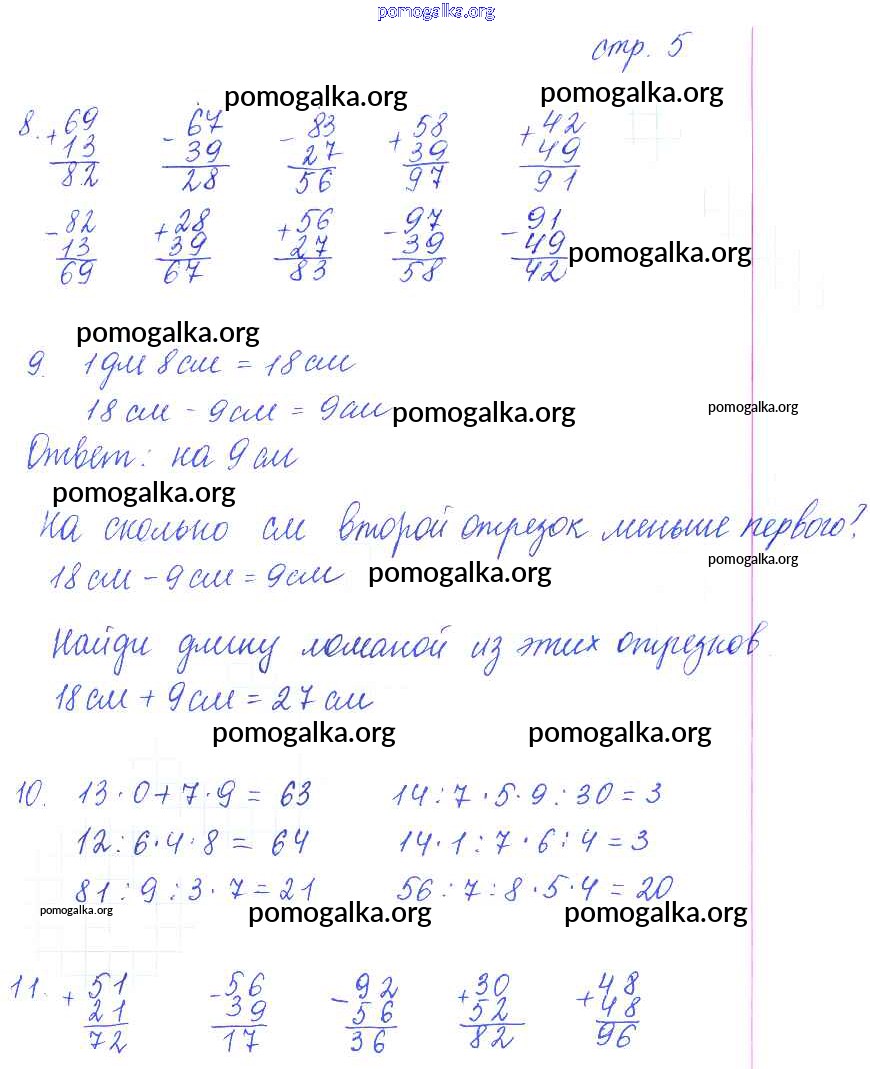 pomogalka.org
стр. 5
pomogalka.org pomogalka.org
8. +69 -67 -83 +58 +42
13 39 27 39 49
82 28 56 97 91
-82 +28 +56 -97 -91
13 39 27 39 49 pomogalka.org
69 67 83 58 42
pomogalka.org
9. 1 дм 8 см = 18 см
18 см - 9 см = 9 см pomogalka.org pomogalka.org
Ответ: на 9 см
pomogalka.org
На сколько см второй отрезок меньше первого?
18 см - 9 см = 9 см pomogalka.org pomogalka.org
Найди длину ломаной из этих отрезков.
18 см + 9 см = 27 см
pomogalka.org pomogalka.org
10. 13 · 0 + 7 · 9 = 63 14 : 7 · 5 · 9 : 30 = 3
12 : 6 · 4 · 8 = 64 14 · 1 : 7 · 6 : 4 = 3
81 : 9 : 3 · 7 = 21 56 : 7 : 8 · 5 · 4 = 20
pomogalka.org pomogalka.org pomogalka.org
11. +51 -56 -92 +30 +48
21 39 56 52 48
72 17 36 82 96